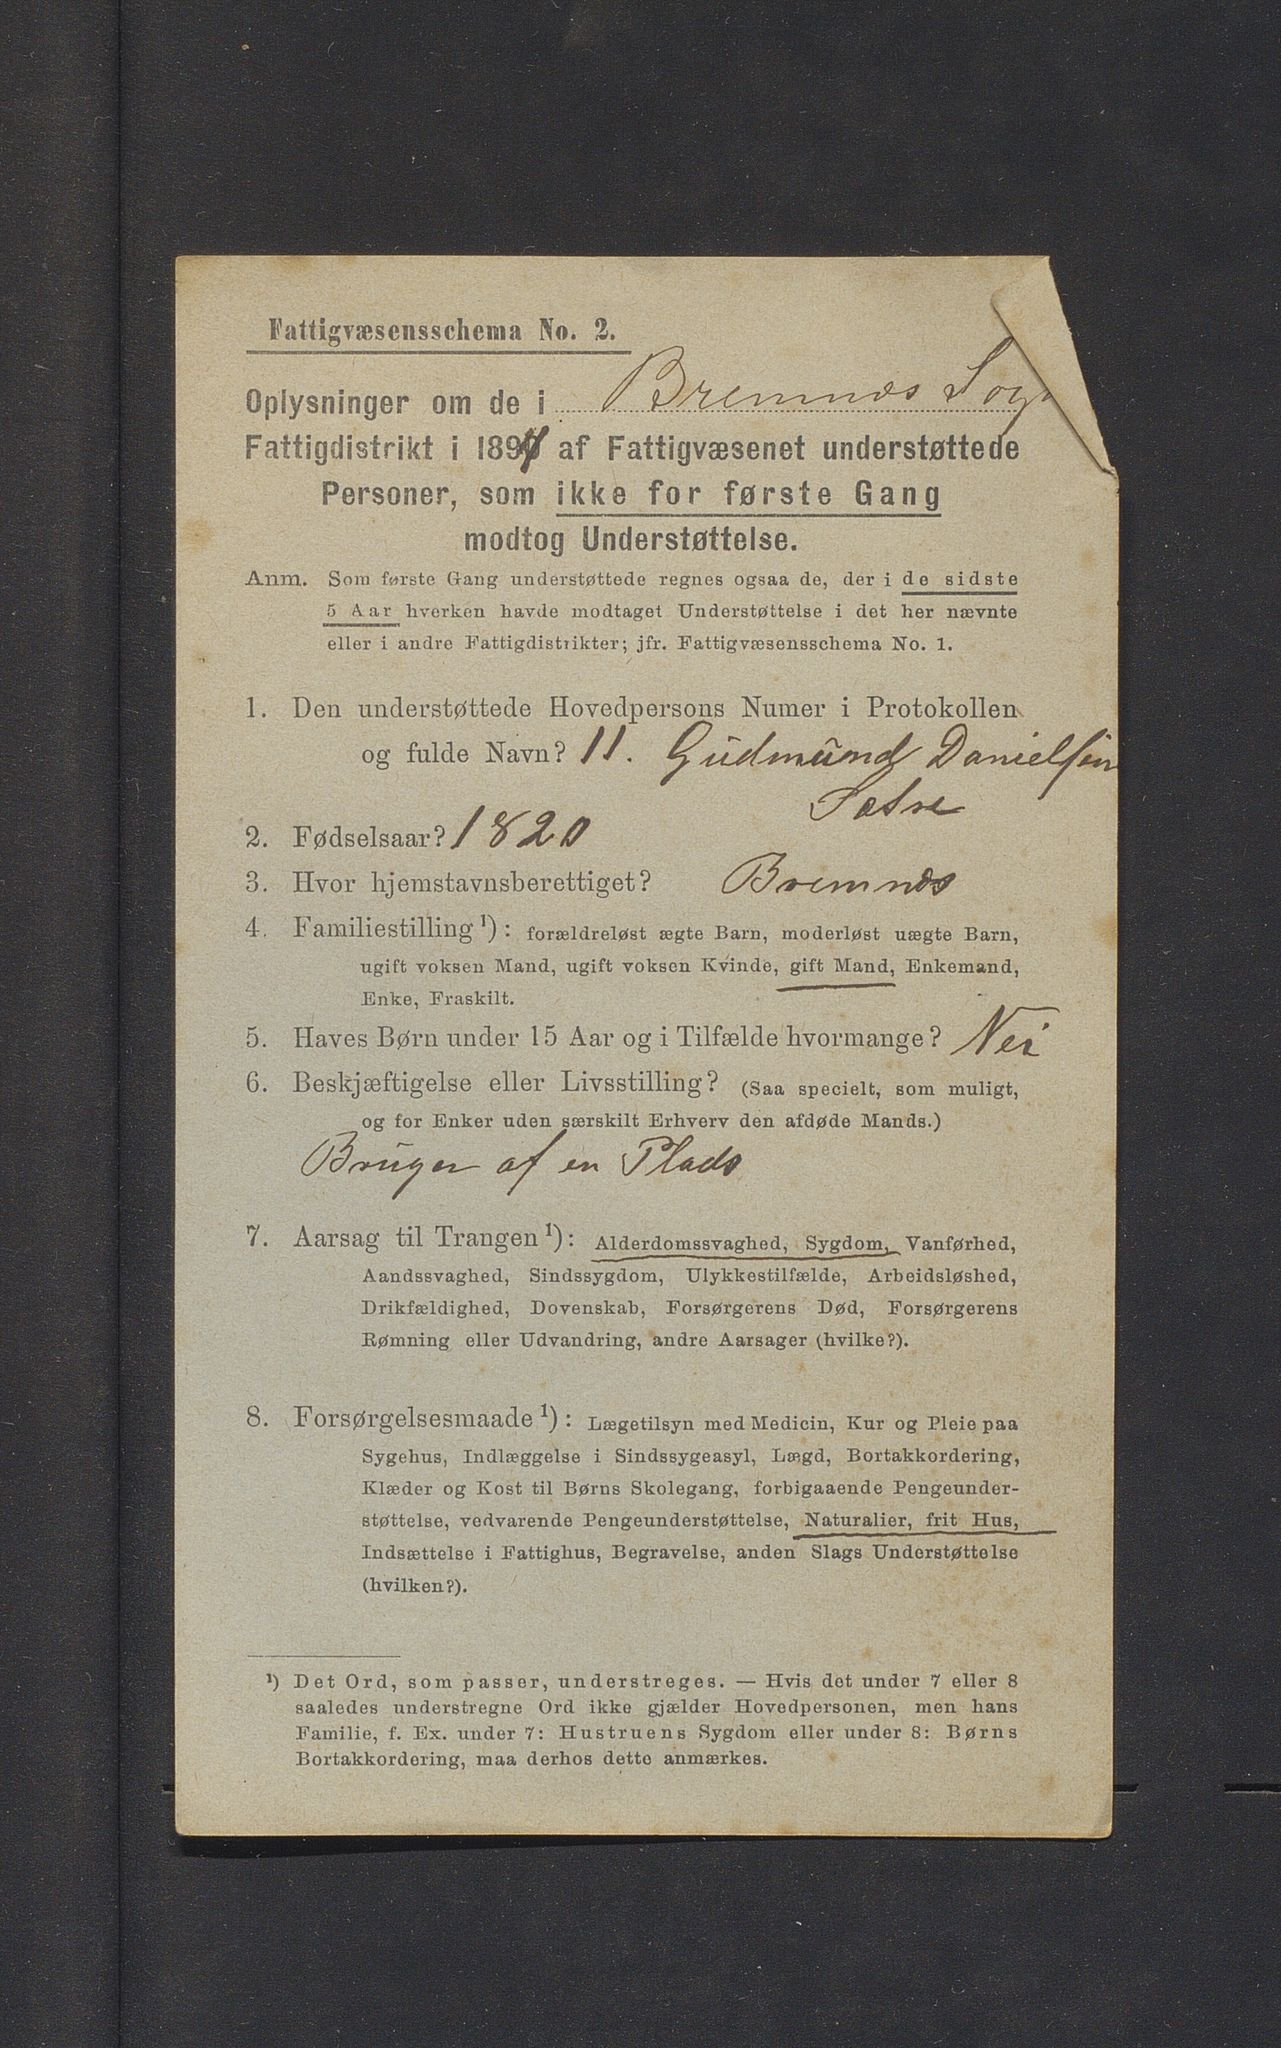 Fattigvæsensschema No. 2.
Oplysninger om de i Bremnæs Sogn
Fattigdistrikt i 1894 af Fattigvæsenet understøttede
Personer, som ikke for første Gang
modtog Understøttelse.
Anm. Som første Gang understøttede regnes ogsaa de, der i de sidste
5 Aar hverken havde modtaget Understøttelse i det her nævnte
eller i andre Fattigdistrikter; jfr. Fattigvæsensschema No. 1.
1. Den understøttede Hovedpersons Numer i Protokollen
og fulde Navn? 11. Gudmund Danielsen
Sætre
2. Fødselsaar? 1820
3. Hvor hjemstavnsberettiget? Bremnæs
4. Familiestilling¹): forældreløst ægte Barn, moderløst uægte Barn,
ugift voksen Mand, ugift voksen Kvinde, gift Mand, Enkemand,
Enke, Fraskilt.
5. Haves Børn under 15 Aar og i Tilfælde hvormange? Nei
6. Beskjæftigelse eller Livsstilling? (Saa specielt, som muligt,
og for Enker uden særskilt Erhverv den afdøde Mands.)
Bruger af en Plads
7. Aarsag til Trangen¹): Alderdomssvaghed, Sygdom, Vanførhed,
Aandssvaghed, Sindssygdom, Ulykkestilfælde, Arbeidsløshed,
Drikfældighed, Dovenskab, Forsørgerens Død, Forsørgerens
Rømning eller Udvandring, andre Aarsager (hvilke?).
8. Forsørgelsesmaade¹): Lægetilsyn med Medicin, Kur og Pleie paa
Sygehus, Indlæggelse i Sindssygeasyl, Lægd, Bortakkordering,
Klæder og Kost til Børns Skolegang, forbigaaende Pengeunder-
støttelse, vedvarende Pengeunderstøttelse, Naturalier, frit Hus,
Indsættelse i Fattighus, Begravelse, anden Slags Understøttelse
(hvilken?).
¹) Det Ord, som passer, understreges. — Hvis det under 7 eller 8
saaledes understregne Ord ikke gjælder Hovedpersonen, men hans
Familie, f. Ex. under 7: Hustruens Sygdom eller under 8: Børns
Bortakkordering, maa derhos dette anmærkes.